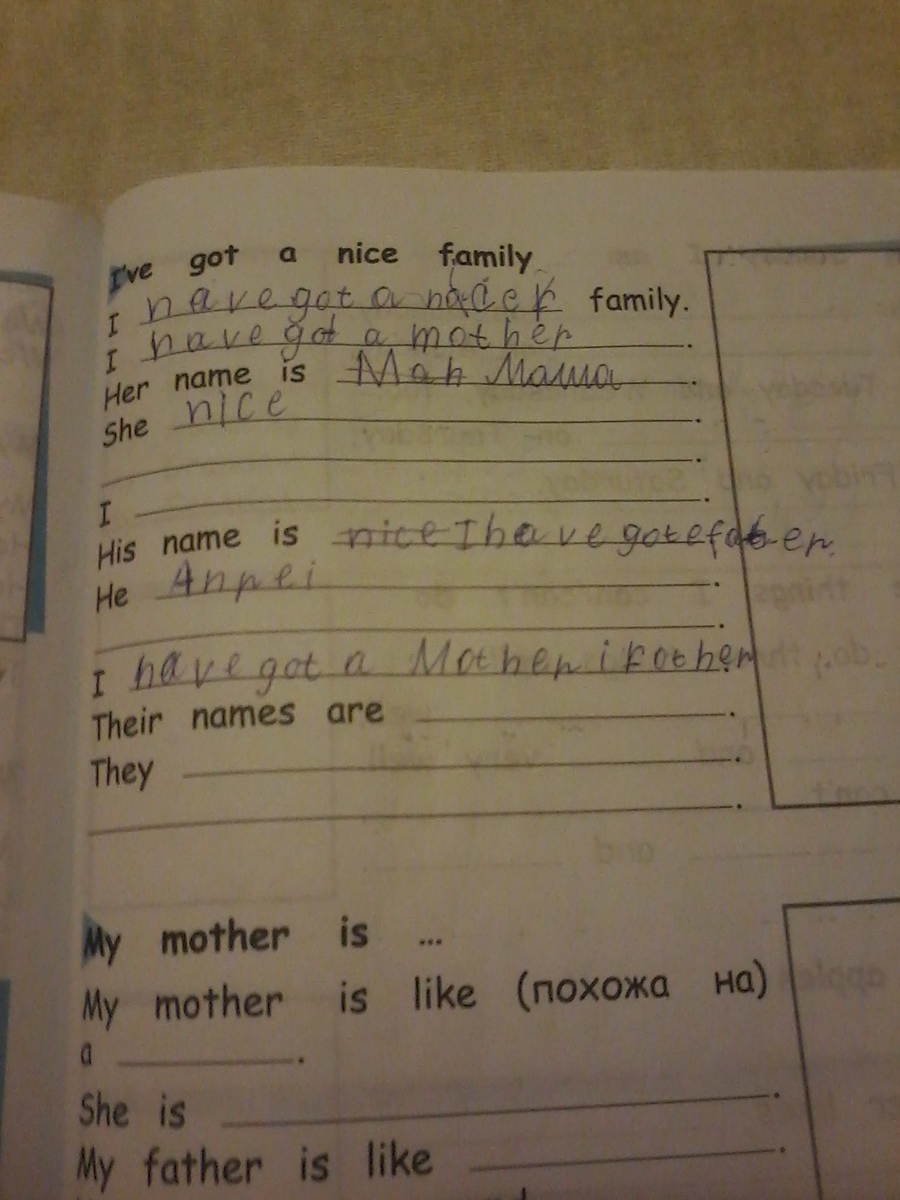 I've got a nice family
I have got a family.
I have got a mother .
Her name is Мама .
She nice .
.
I .
His name is nice I have got e fater.
He Anpei .
.
I have got a Mother i
Their names are .
They .
.
My mother is ...
My mother is like (похожа на)
a .
She is .
My father is like .